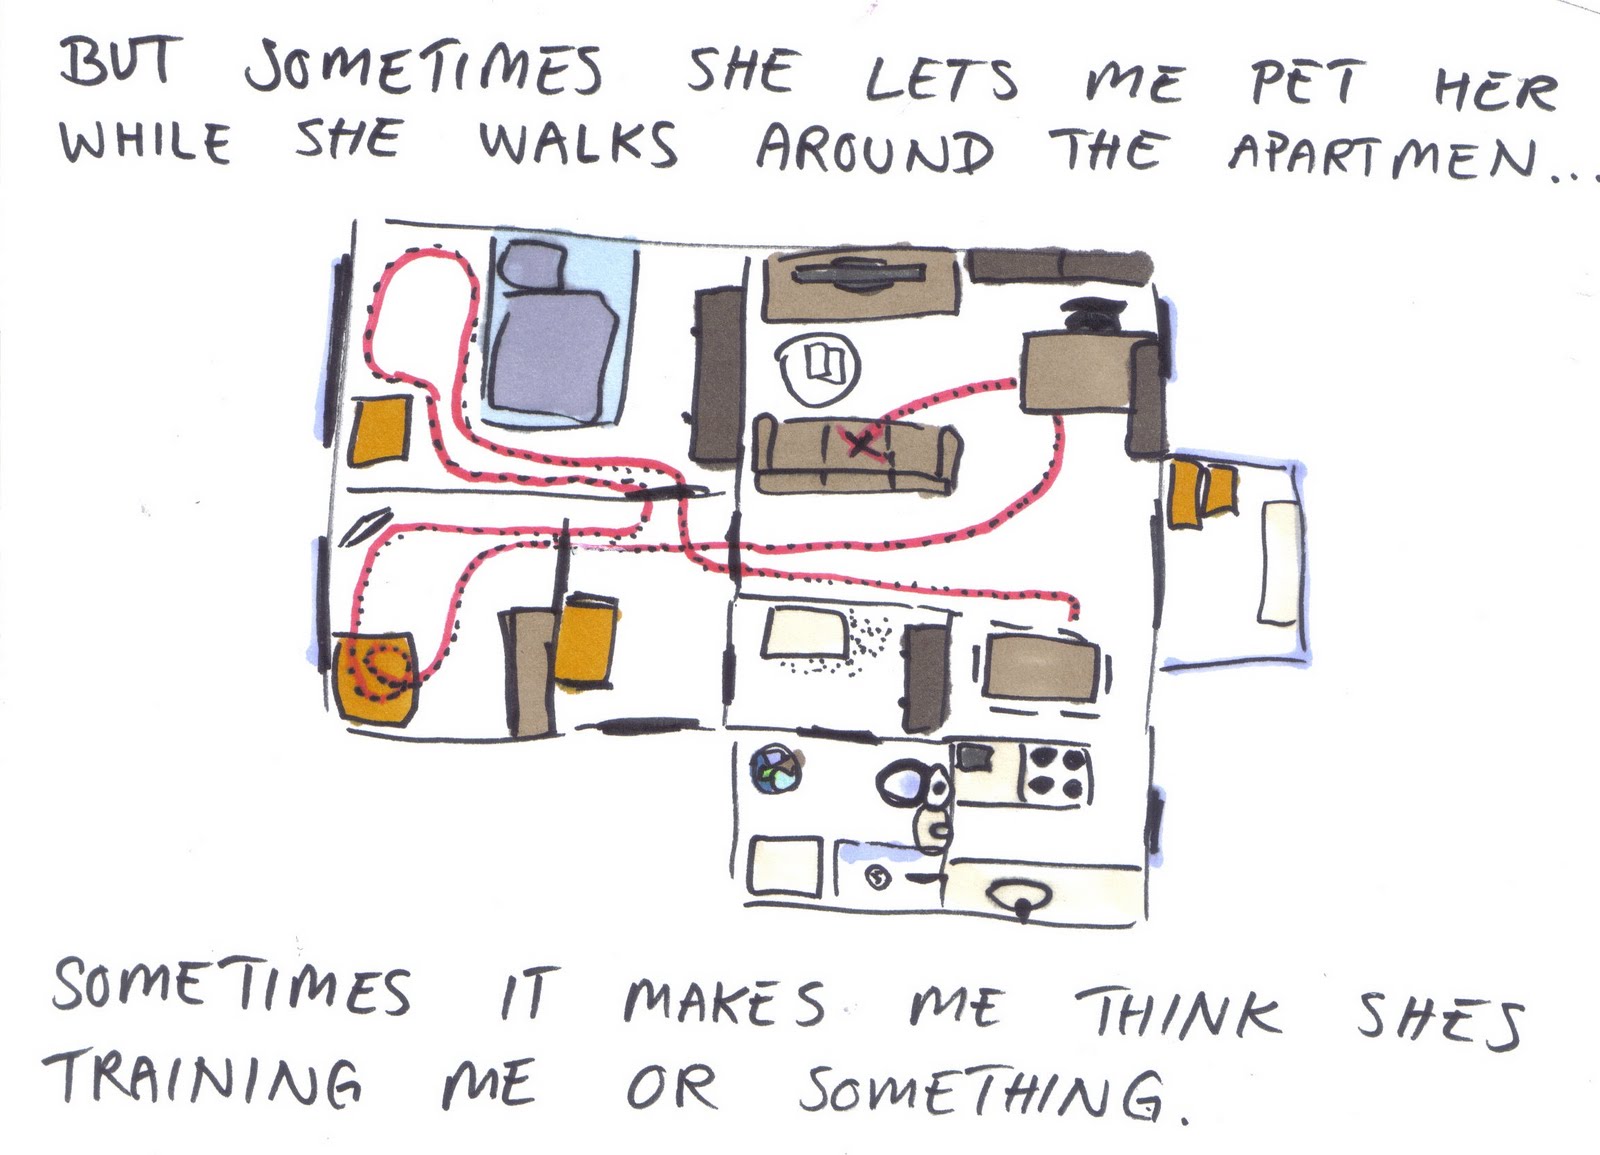 BUT SOMETIMES SHE LETS ME PET HER
WHILE SHE WALKS AROUND THE APARTMEN...
SOMETIMES IT MAKES ME THINK SHES
TRAINING ME OR SOMETHING.